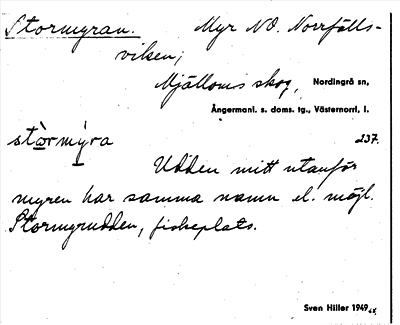 Stormyran. Myr NO. Norrfälls-
viken;
Mjälloms skog, Nordingrå sn,
Ångermanl. s. doms. tg., Västernorrl. l.
stòrmýra 237.
Udden mitt utanför
myren har samma namn el. möjl.
Stormyrudden, fiskeplats.
Sven Hiller 1949